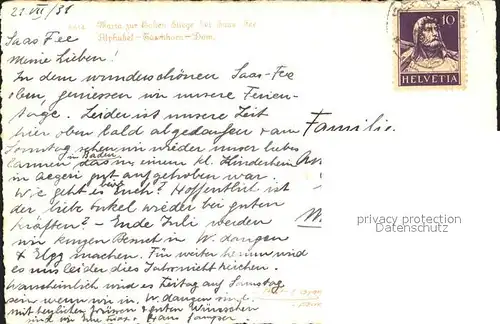 21 VII / 31
Maria zur Hohen Stiege bei Saas Fee
Alphubel - Täschhorn - Dom.
10
HELVETIA
Saas Fee
Meine Lieben!
In dem wunderschönen Saas-Fee
oben, geniessen wir unsere Ferien-
tage. Leider ist unsere Zeit
hier oben bald abgelaufen & am
Familie
Sonntag sehen wir wieder unser liebes
in Baden
das in einem kl. Kinderheim
in Aegeri gut aufgehoben war.
Wie geht es bei Euch? Hoffentlich ist
der liebe Onkel wieder bei guten
Kräften? - Ende Juli werden
wir kurzen Besuch in W.
& Elgg machen. Für weiter herum wird
es uns leider dies Jahr nicht reichen.
Wahrscheinlich wird es Freitag auf Samstag
sein wenn wir in W. sind.
mit herzlichen Grüssen & guten Wünschen
sind wir Eure
W.
privacy protection
www.ansichtskartenversand.com